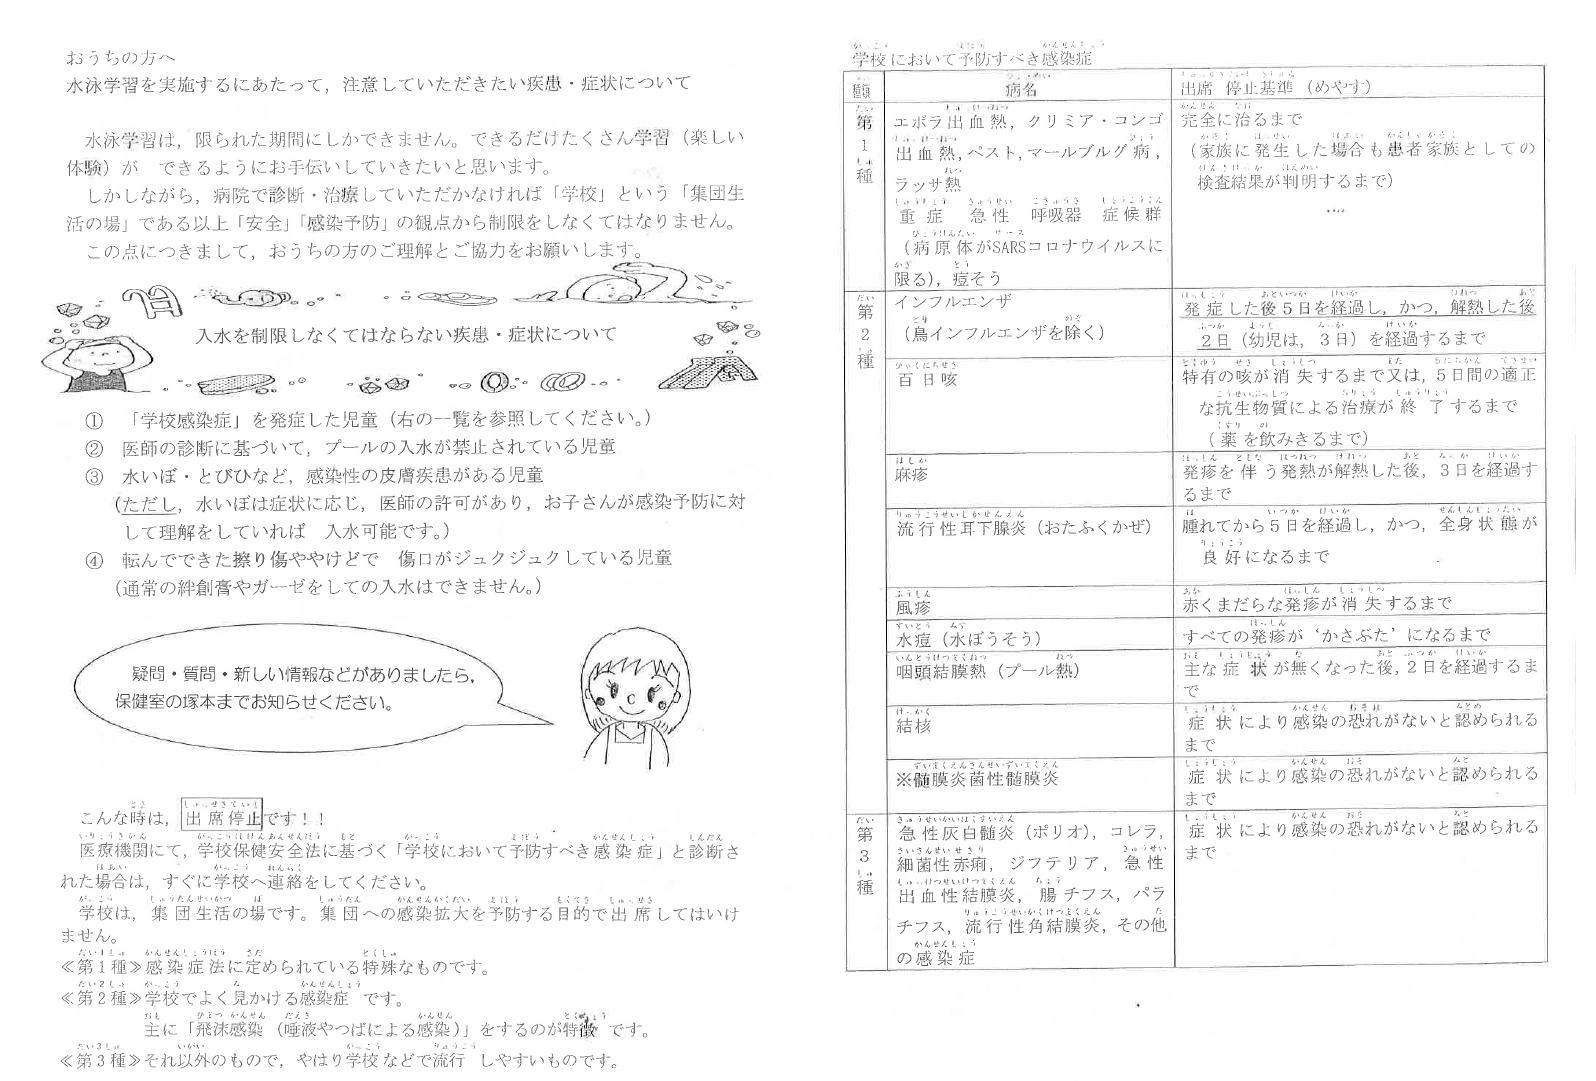 おうちの方へ
水泳学習を実施するにあたって，注意していただきたい疾患・症状について
水泳学習は，限られた期間にしかできません。できるだけたくさん学習（楽しい
体験）が　できるようにお手伝いしていきたいと思います。
しかしながら，病院で診断・治療していただかなければ「学校」という「集団生
活の場」である以上「安全」「感染予防」の観点から制限をしなくてはなりません。
この点につきまして，おうちの方のご理解とご協力をお願いします。
入水を制限しなくてはならない疾患・症状について
①　「学校感染症」を発症した児童（右の一覧を参照してください。）
②　医師の診断に基づいて，プールの入水が禁止されている児童
③　水いぼ・とびひなど，感染性の皮膚疾患がある児童
（ただし，水いぼは症状に応じ，医師の許可があり，お子さんが感染予防に対
して理解をしていれば　入水可能です。）
④　転んでできた擦り傷ややけどで　傷口がジュクジュクしている児童
（通常の絆創膏やガーゼをしての入水はできません。）
疑問・質問・新しい情報などがありましたら，
保健室の塚本までお知らせください。
こんな時は，出席停止です！！
医療機関にて，学校保健安全法に基づく「学校において予防すべき感染症」と診断さ
れた場合は，すぐに学校へ連絡をしてください。
学校は，集団生活の場です。集団への感染拡大を予防する目的で出席してはいけ
ません。
≪第１種≫感染症法に定められている特殊なものです。
≪第２種≫学校でよく見かける感染症　です。
主に「飛沫感染（唾液やつばによる感染）」をするのが特徴　です。
≪第３種≫それ以外のもので，やはり学校などで流行　しやすいものです。
学校において予防すべき感染症
種類　病名　出席　停止基準（めやす）
第１種
エボラ出血熱，クリミア・コンゴ
出血熱，ペスト，マールブルグ病，
ラッサ熱
重症　急性　呼吸器　症候群
（病原体がSARSコロナウイルスに
限る），痘そう
完全に治るまで
（家族に発生した場合も患者家族としての
検査結果が判明するまで）
第２種
インフルエンザ
（鳥インフルエンザを除く）
発症した後５日を経過し，かつ，解熱した後
２日（幼児は，３日）を経過するまで
百日咳
特有の咳が消失するまで又は，５日間の適正
な抗生物質による治療が終了するまで
（薬を飲みきるまで）
麻疹
発疹を伴う発熱が解熱した後，３日を経過す
るまで
流行性耳下腺炎（おたふくかぜ）
腫れてから５日を経過し，かつ，全身状態が
良好になるまで
風疹
赤くまだらな発疹が消失するまで
水痘（水ぼうそう）
すべての発疹が‘かさぶた’になるまで
咽頭結膜熱（プール熱）
主な症状が無くなった後，２日を経過するま
で
結核
症状により感染の恐れがないと認められる
まで
※髄膜炎菌性髄膜炎
症状により感染の恐れがないと認められる
まで
第３種
急性灰白髄炎（ポリオ），コレラ，
細菌性赤痢，ジフテリア，急性
出血性結膜炎，腸チフス，パラ
チフス，流行性角結膜炎，その他
の感染症
症状により感染の恐れがないと認められる
まで